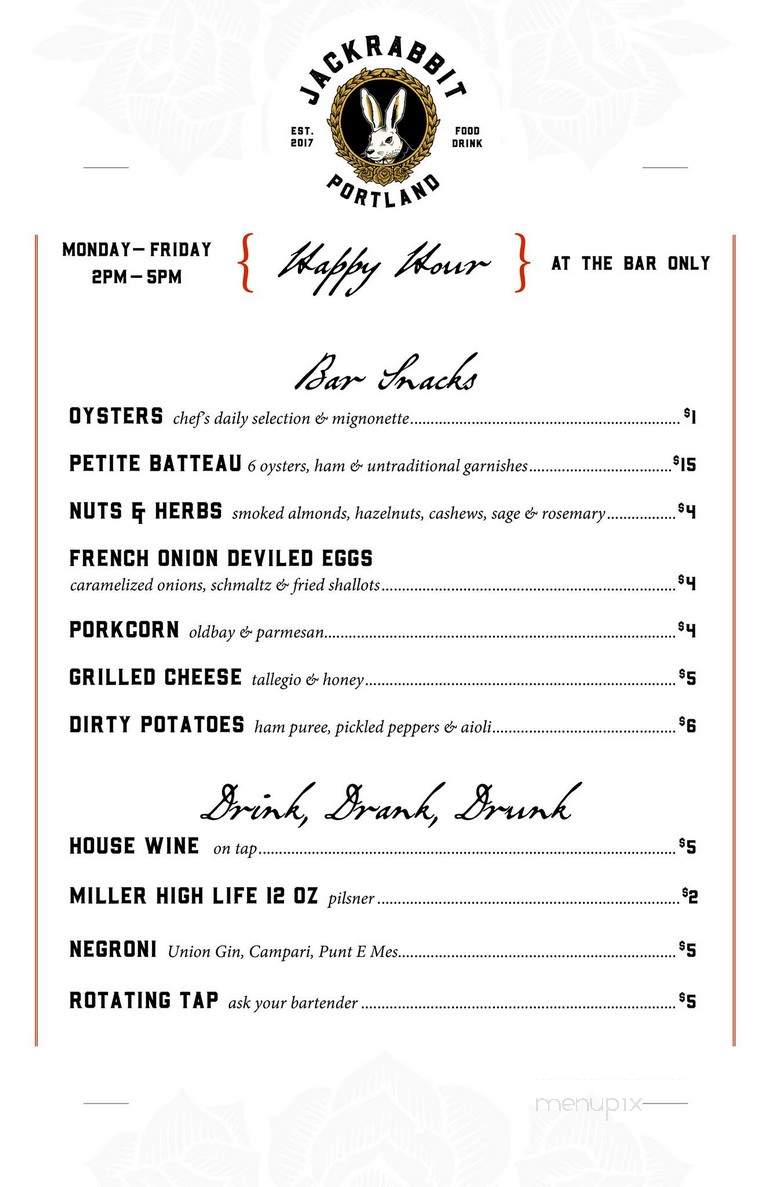 JACKRABBIT
EST. 2017
FOOD DRINK
PORTLAND
MONDAY—FRIDAY
2PM—5PM
{ Happy Hour }
AT THE BAR ONLY
Bar Snacks
OYSTERS chef's daily selection & mignonette $1
PETITE BATTEAU 6 oysters, ham & untraditional garnishes $15
NUTS & HERBS smoked almonds, hazelnuts, cashews, sage & rosemary $4
FRENCH ONION DEVILED EGGS
caramelized onions, schmaltz & fried shallots $4
PORKCORN oldbay & parmesan $4
GRILLED CHEESE tallegio & honey $5
DIRTY POTATOES ham puree, pickled peppers & aioli $6
Drink, Drank, Drunk
HOUSE WINE on tap $5
MILLER HIGH LIFE 12 OZ pilsner $2
NEGRONI Union Gin, Campari, Punt E Mes $5
ROTATING TAP ask your bartender $5
menupix